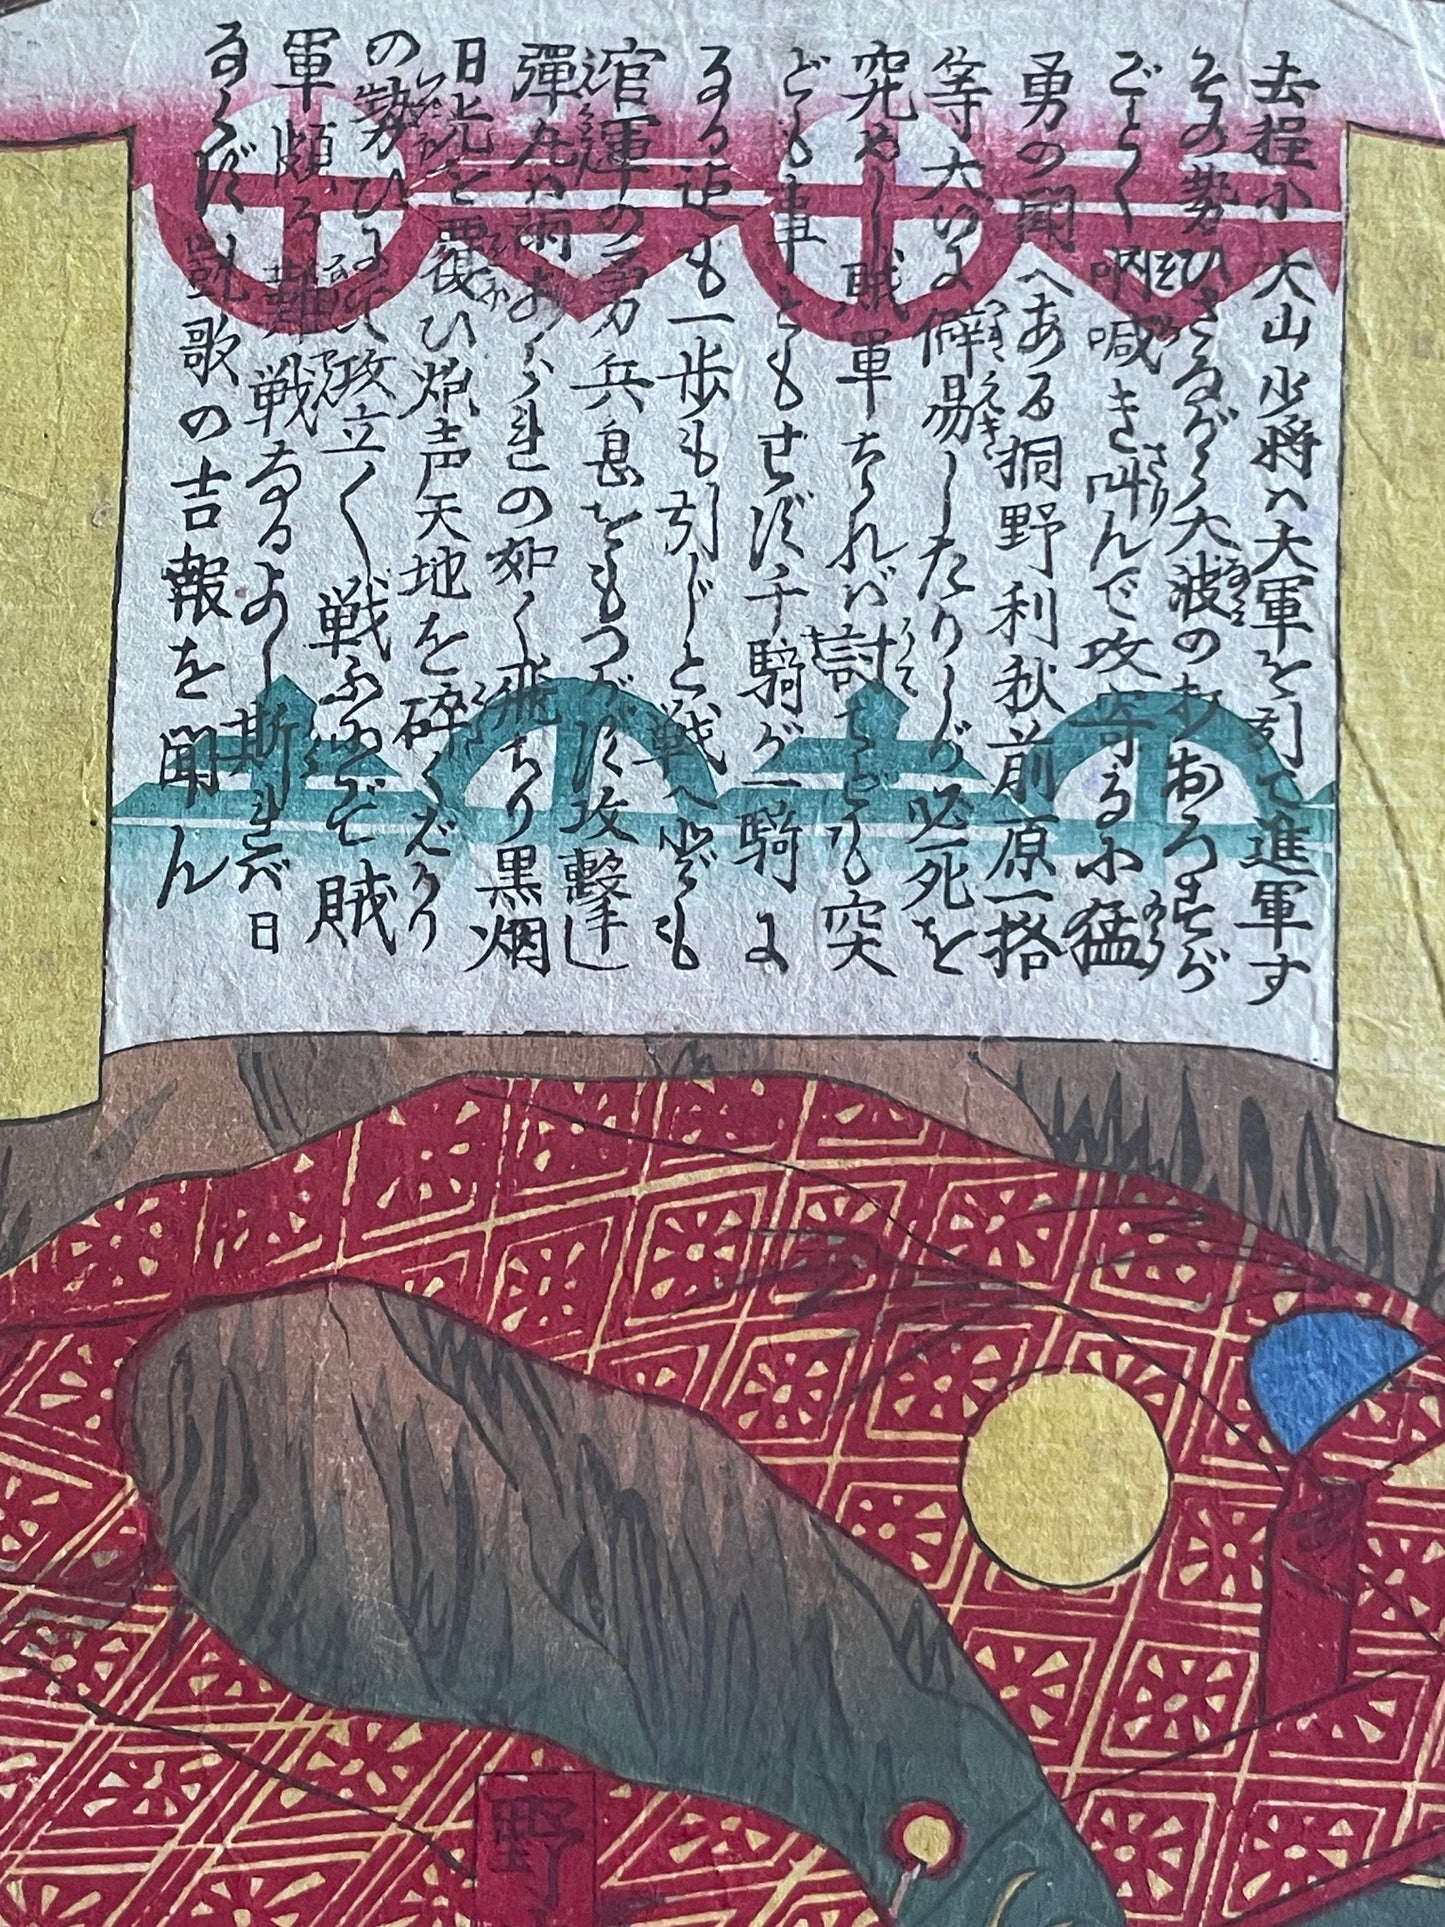 去程小大山少将ハ大軍を引て進軍す
その勢ひさながら大波のおあつまが
ごとく吶喊き叫んで攻寄る小猛
勇の聞へある桐野利秋前原一格
等大いに僻易したりしが必死を
究めし賊軍なれバ討てども突
どもも事ともせず千騎が一騎に
なる迄も一歩も引じと戦へども
官軍の勇兵息をもつがず攻撃し
彈丸ハ雨あられの如く飛ちり黒烟
日光を覆ひ炮声天地を砕くばかり
の勢ひにて攻立く戦ふゆゑぞ賊
軍頗る難戦なるよし斯れバ日
ならず凱歌の吉報を聞ん
野